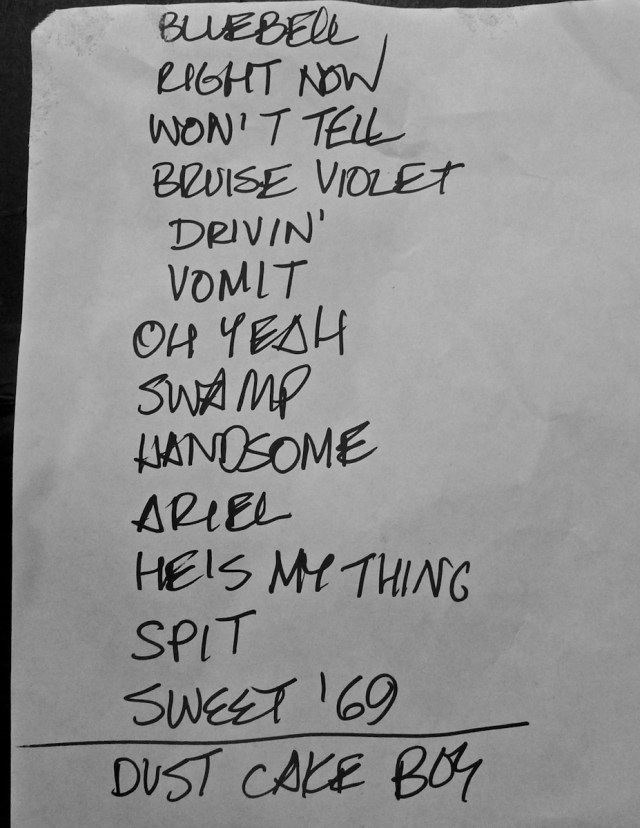 BLUEBELL
RIGHT NOW
WON'T TELL
BRUISE VIOLET
DRIVIN'
VOMIT
OH YEAH
SWAMP
HANDSOME
ARIEL
HE'S MY THING
SPIT
SWEET '69
DUST CAKE BOY